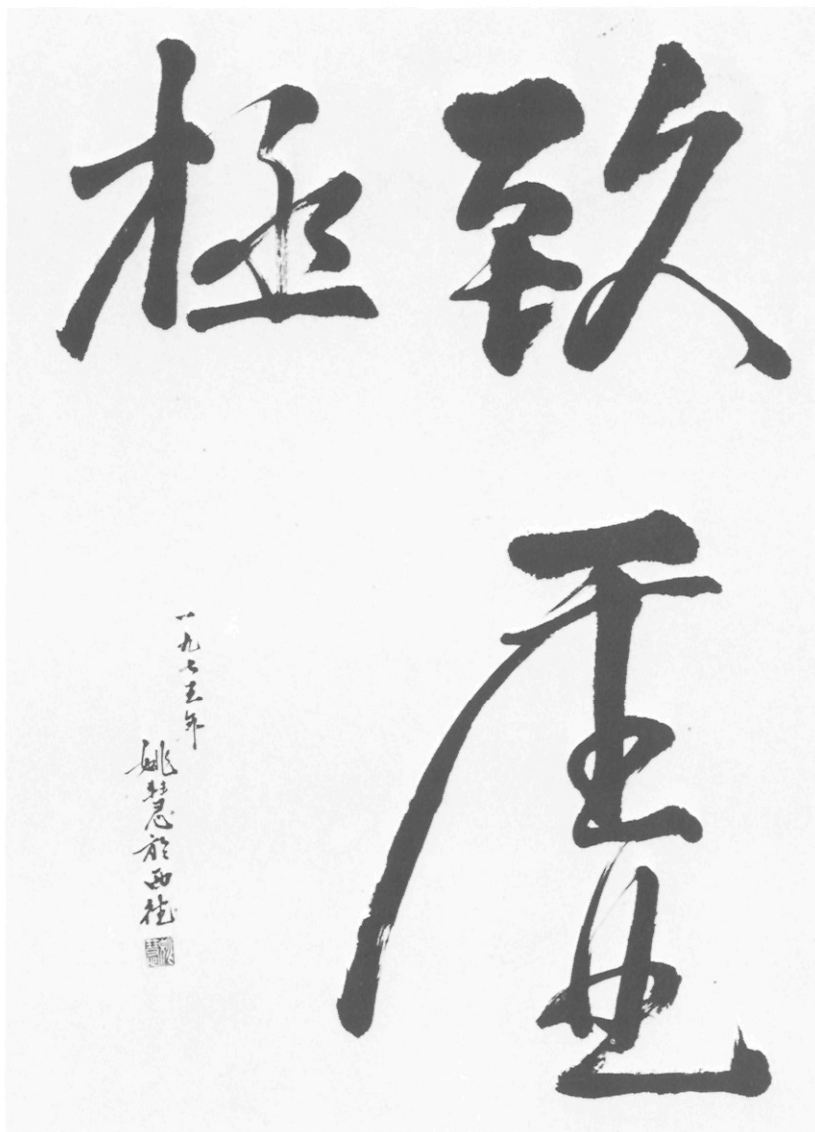 致虛
極
一九七五年
姚慧於西德